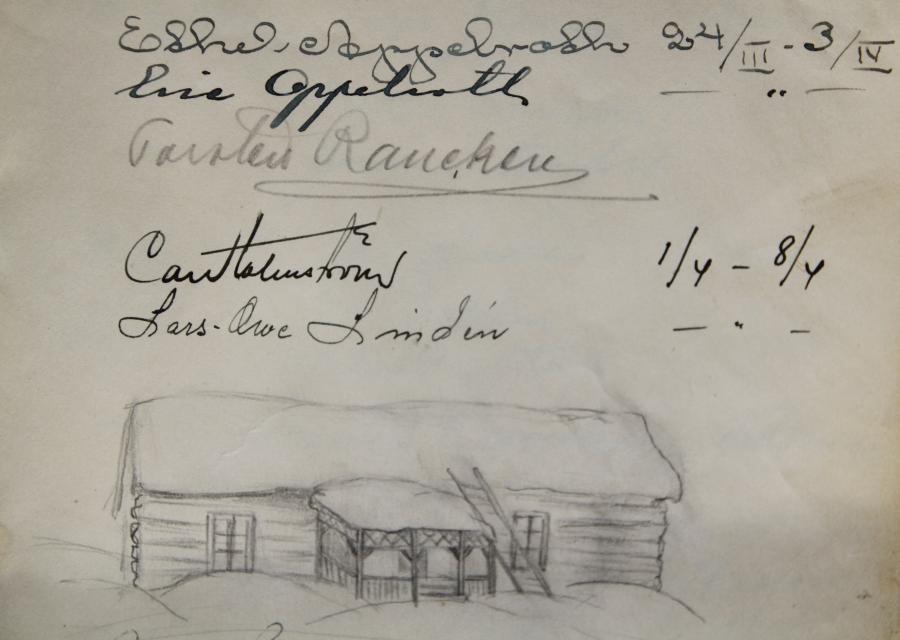 Ethel Appelroth 24/III - 3/IV
Eric Appelroth — " —
Torsten Rancken
Carl Holmström 1/4 - 8/4
Lars-Owe Lindén — " —